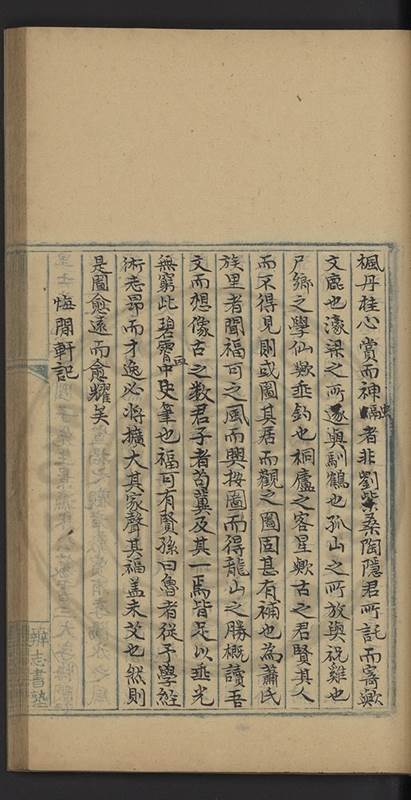 楓丹桂心賞而神融者非劉柴桑陶隱君所託而寄歟
文鹿也濠梁之所逐與馴鶴也孤山之所放與祝雞也
尸鄉之學仙歟垂釣也桐廬之客星歟古之君賢其人
而不得見則或圖其居而觀之圖固甚有補也為蕭氏
族里者聞福可之風而興按圖而得龍山之勝概讀吾
文而想像古之数君子者苟冀及其一焉皆足以垂光
無窮此碧霄中史筆也福可有賢孫曰魯者從予學經
術志昂而才逸必將擴大其家聲其福盖未艾也然則
是圖愈遠而愈耀矣
悔閒軒記
辭志書塾